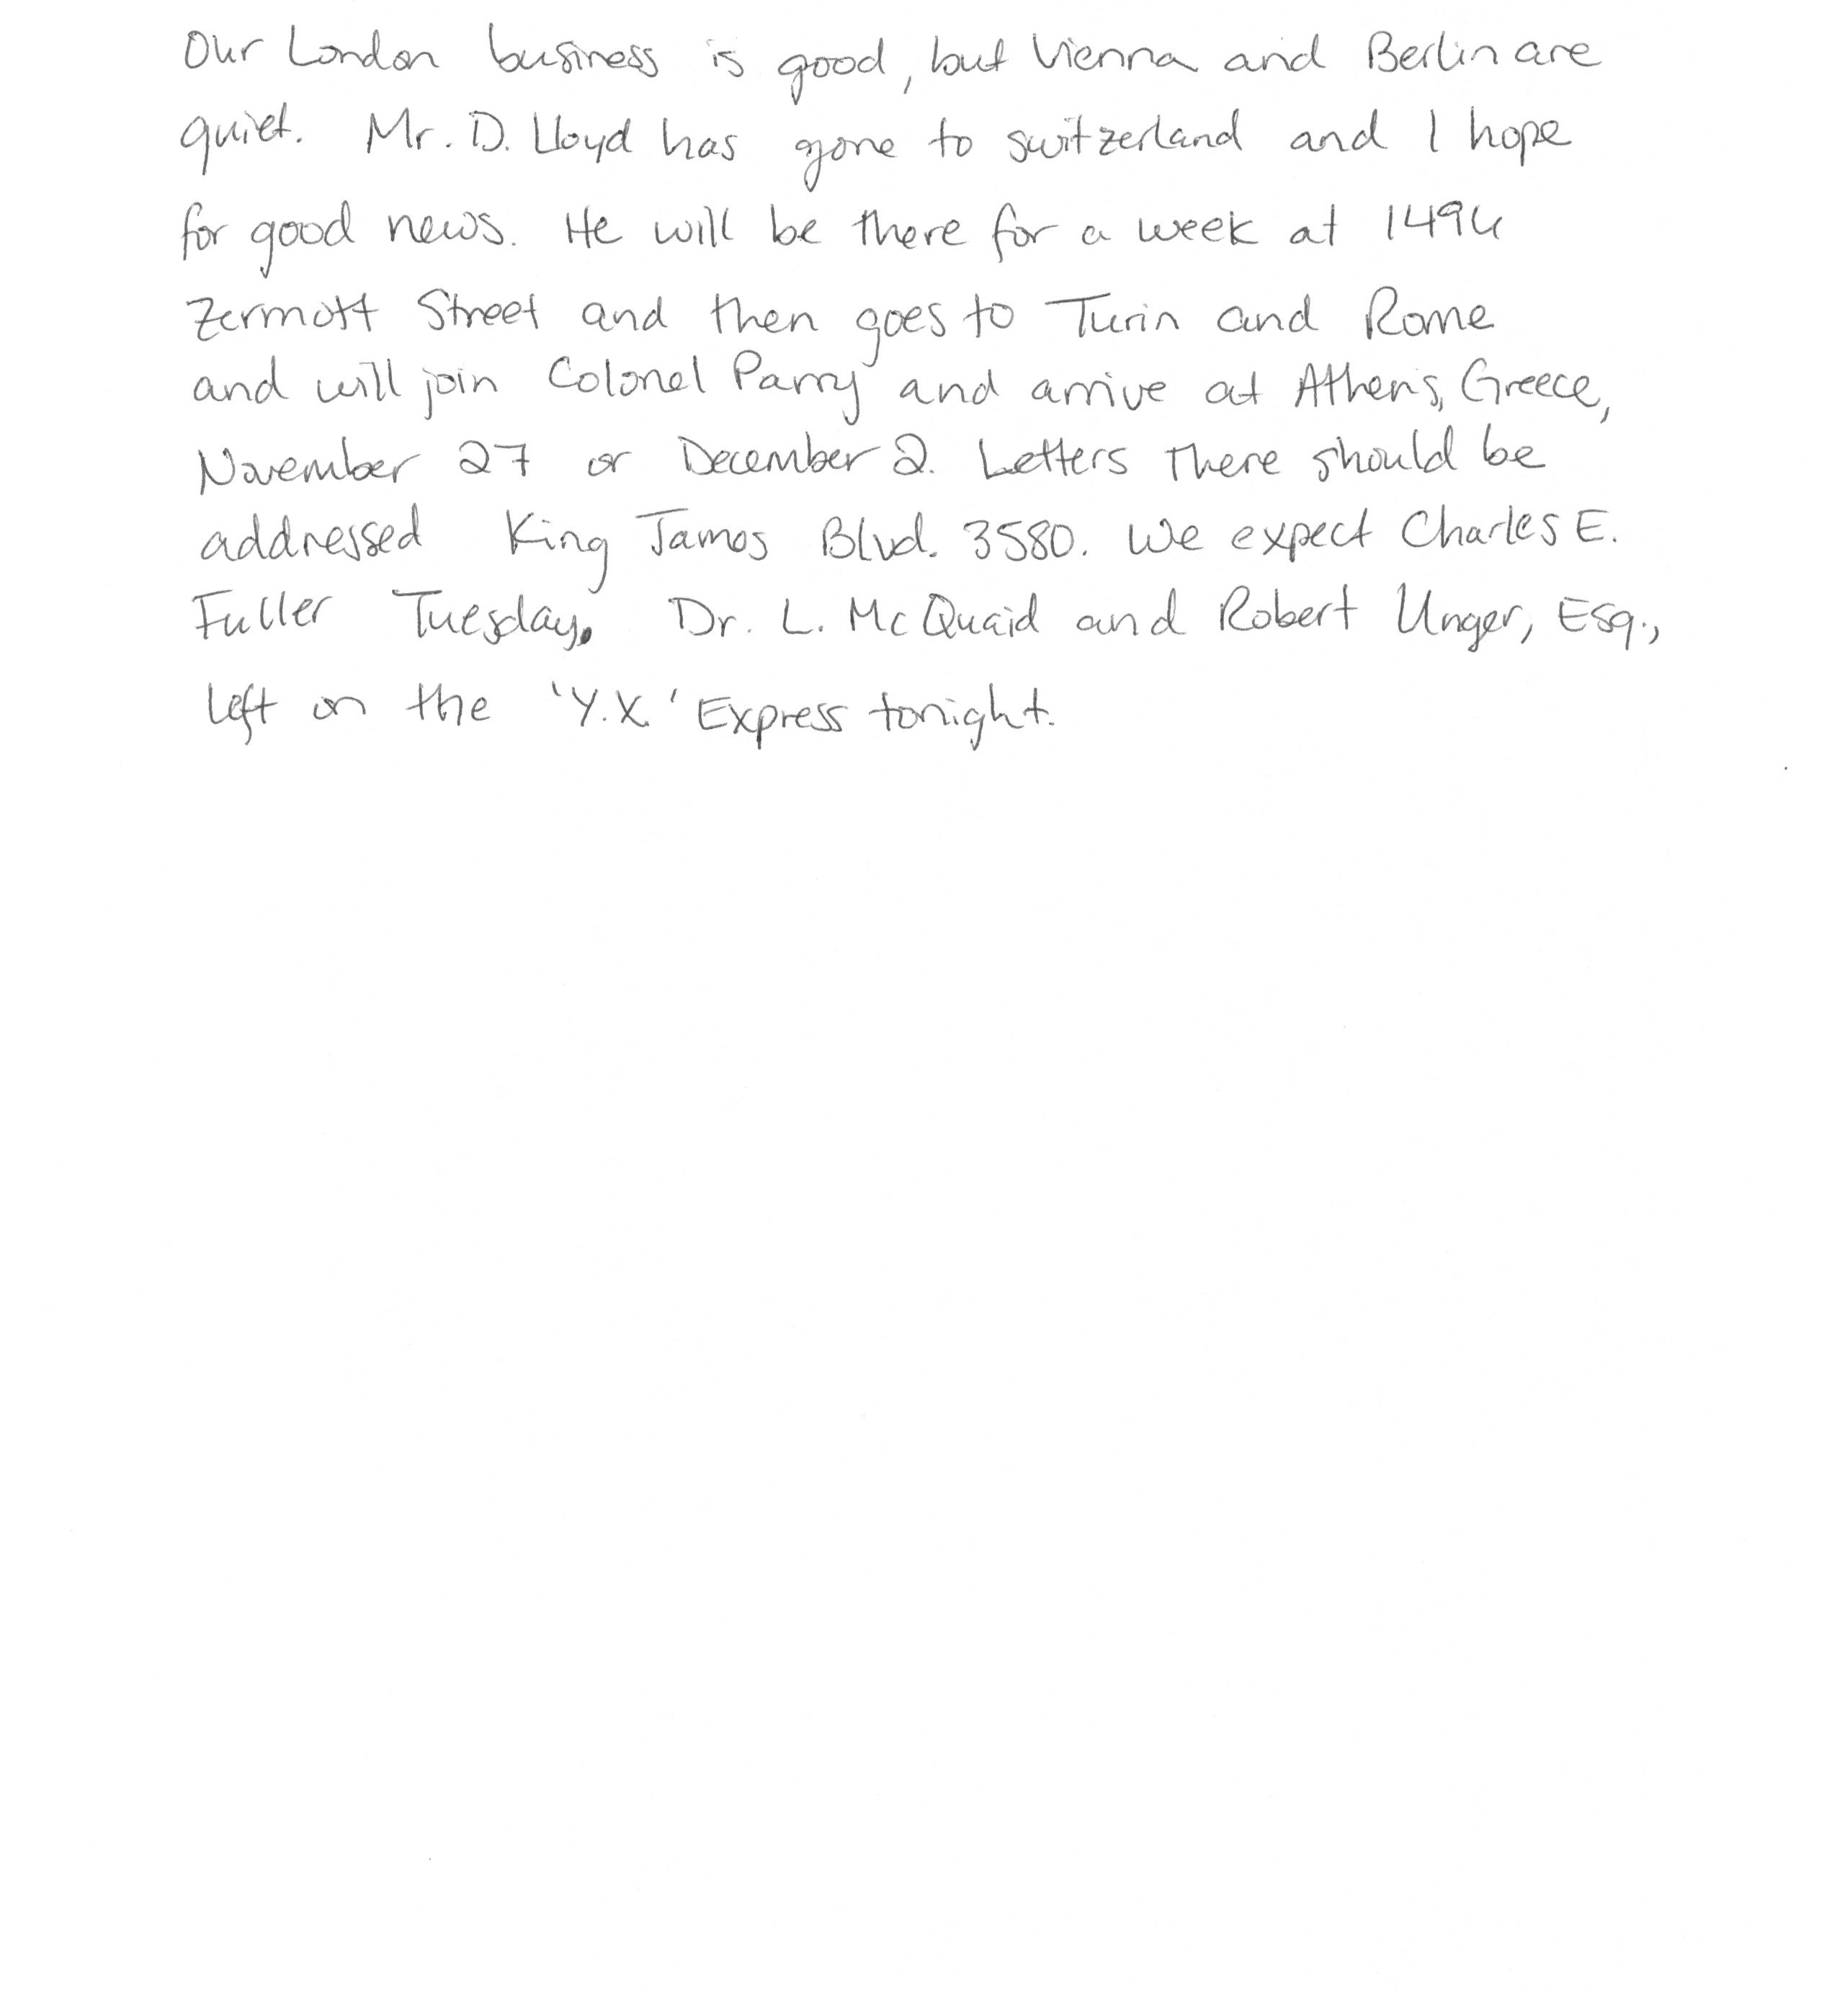 Our London business is good, but Vienna and Berlin are
quiet. Mr. D. Lloyd has gone to switzerland and I hope
for good news. He will be there for a week at 1494
Zermott Street and then goes to Turin and Rome
and will join Colonel Parry and arrive at Athens, Greece,
November 27 or December 2. Letters there should be
addressed King James Blvd. 3580. We expect Charles E.
Fuller Tuesday. Dr. L. McQuaid and Robert Unger, Esq.,
left on the 'Y.X.' Express tonight.